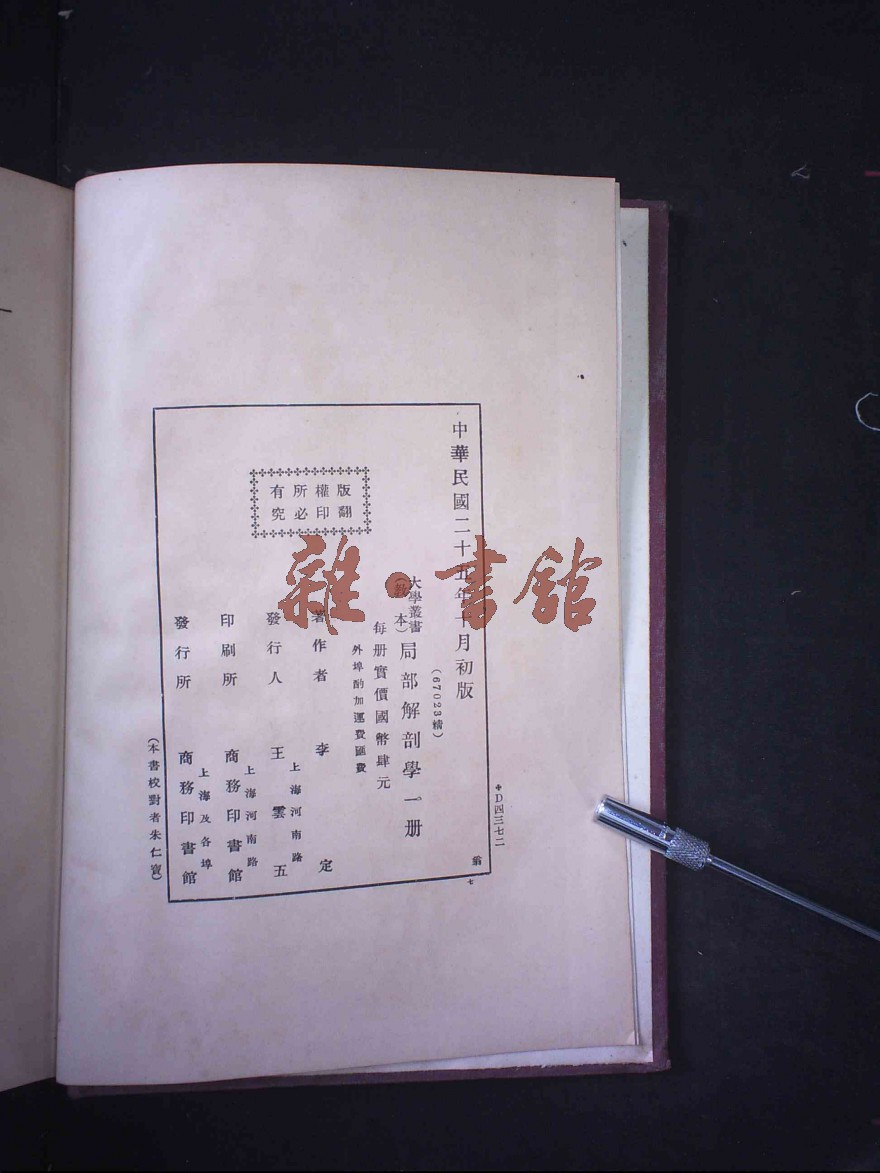 中華民國二十五年十月初版
(67023精)
大學叢書
(教本)
局部解剖學一册
每册實價國幣肆元
外埠酌加運費匯費
著作者 李定
發行人 王雲五
上海河南路
印刷所 商務印書館
上海河南路
發行所 商務印書館
上海及各埠
版權所有
翻印必究
(本書校對者朱仁寶)
D四三七二
翁
七
雜·書館